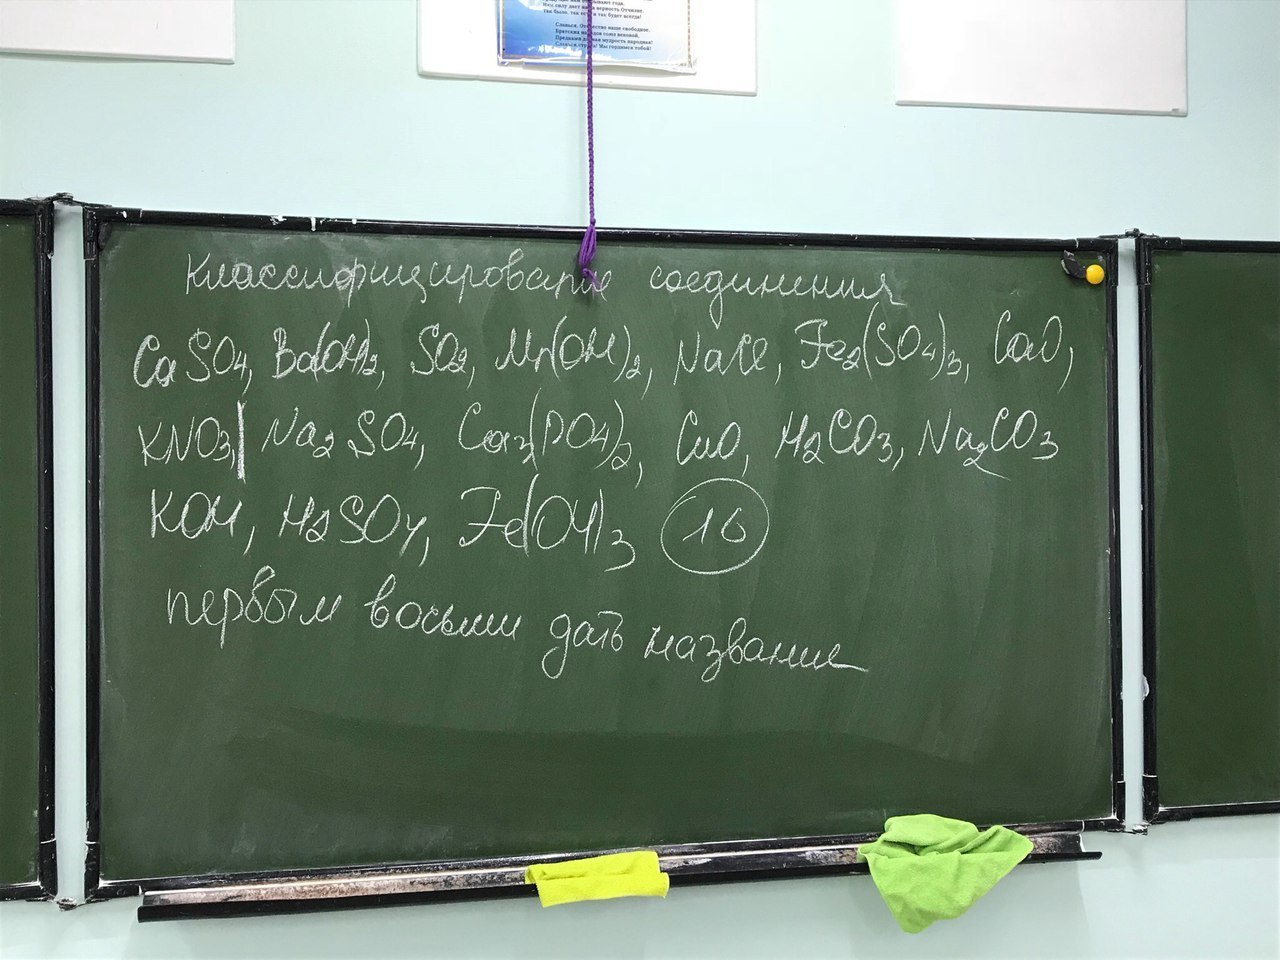 нам силу дает наша верность Отчизне.
Так было, так есть и так будет всегда!
Славься, Отечество наше свободное,
Братских народов союз вековой,
Предками данная мудрость народная!
Славься, страна! Мы гордимся тобой!
Классифицировать соединения
CaSO4, Ba(OH)2, SO2, Mn(OH)2, NaCl, Fe2(SO4)3, CaO,
KNO3,| Na2SO4, Ca3(PO4)2, CuO, H2CO3, Na2CO3
KOH, H2SO4, Fe(OH)3 16
первым восьми дать название